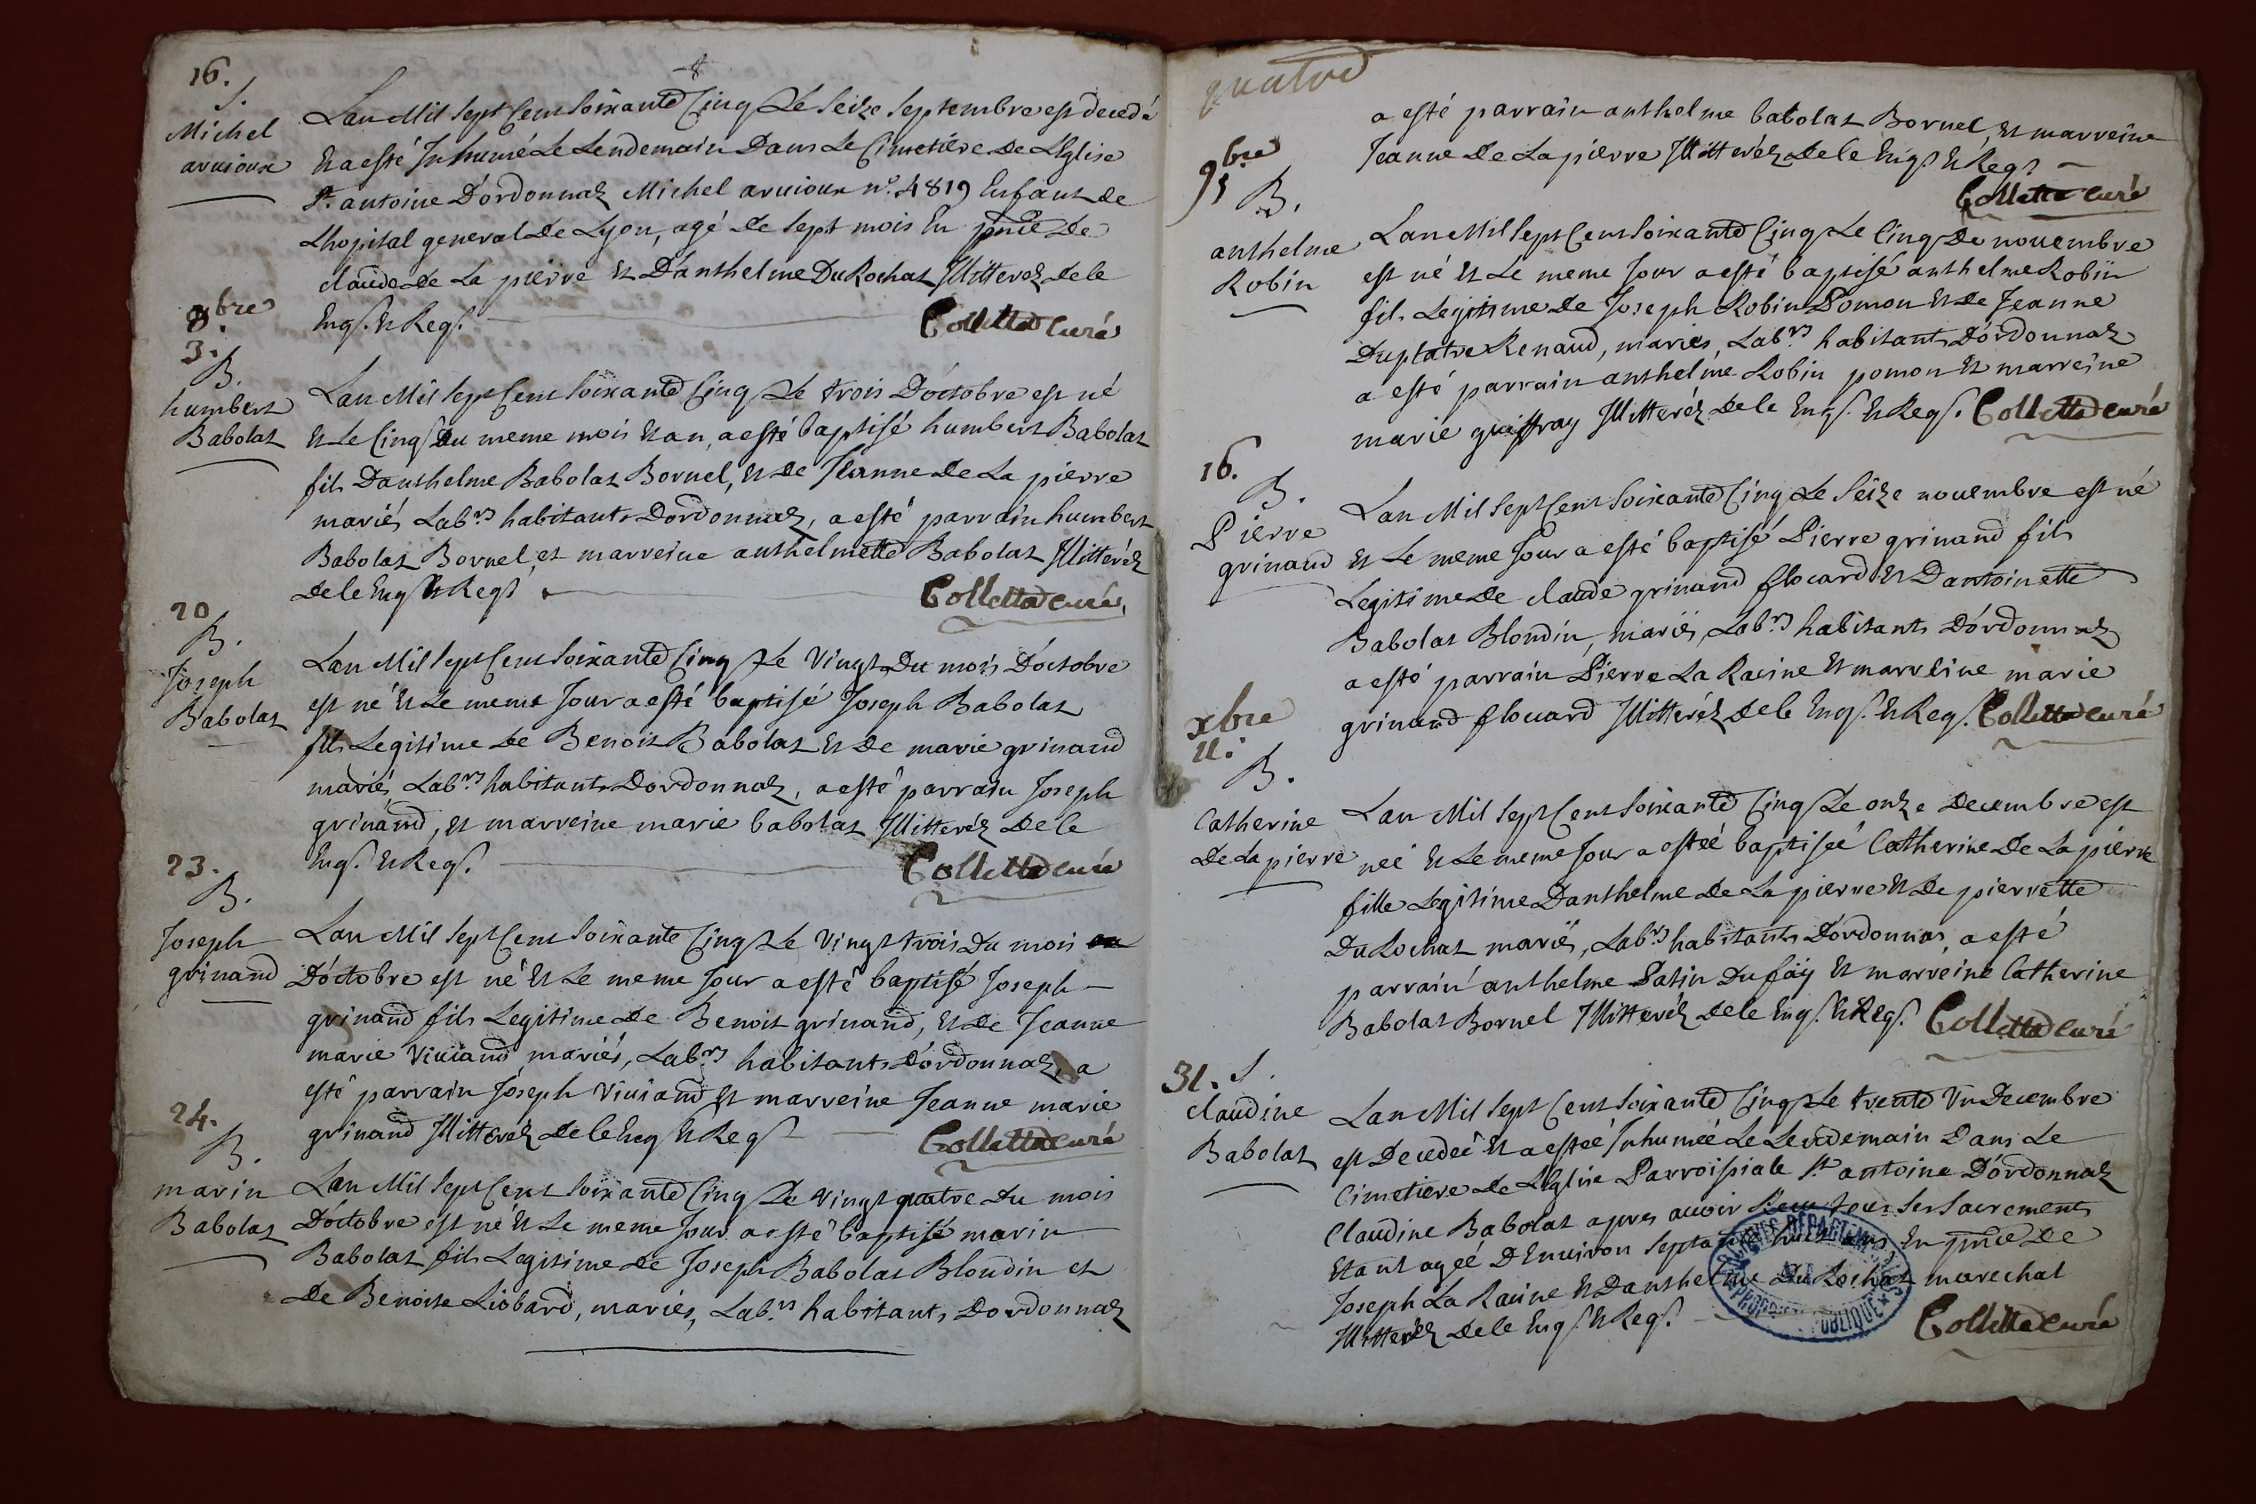 16.
S.
Michel
aruioux
Lan Mil Sept Cent Soixante Cinq Le Seize Septembre est decedé
Et a esté Inhumé Le Lendemain Dans Le Cimetiere De L'Eglise
St. antoine D'ordonnaz Michel aruioux n° 4819 Enfant de
Lhopital general de Lyon, agé de Sept mois En pnce De
claude de La pierre Et D'anthelme Du Rochat Illitterez de le
Enqs. Et Reqs.
Collet Curé
8bre
3.
B.
humbert
Babolat
Lan Mil Sept Cent Soixante Cinq Le trois D'octobre est né
Et Le Cinq Du meme mois Et an, a esté baptisé humbert Babolat
fils Danthelme Babolat Bornel, Et de Jeanne De La pierre
mariés Labrs habitants Dordonnaz, a esté parrain humbert
Babolat Bornel, et marreine anthelmette Babolat Illitteréz
de le Enqs Et Reqs
Collet curé
20
B.
Joseph
Babolat
Lan Mil Sept Cent Soixante Cinq Le Vingt Du mois D'octobre
est né Et Le meme Jour a esté baptisé Joseph Babolat
fils Legitime De Benoit Babolat Et De marie grinand
mariés Labrs habitants Dordonnaz, a esté parrain Joseph
grinand, et marreine marie babolat Illitteréz De le
Enqs. Et Reqs.
Collet curé
23.
B.
Joseph
grinand
Lan Mil Sept Cent Soixante Cinq Le Vingt trois Du mois
D'octobre est né Et Le meme Jour a esté baptisé Joseph
grinand fils Legitime De Benoit grinand, Et De Jeanne
marie Viuiand, mariés, Labrs habitants D'ordonnaz, a
esté parrain Joseph Viuiand et marreine Jeanne marie
grinand Illitteréz De le Enqs Et Reqs
Collet curé
24.
B.
marin
Babolat
Lan Mil Sept Cent Soixante Cinq Le Vingt quatre Du mois
D'octobre est né Et Le meme Jour a esté baptisé marin
Babolat fils Legitime de Joseph Babolat Blondin et
De Benoite Liobard, mariés, Labrs habitants Dordonnaz
a esté parrain anthelme babolat Bornel, et marreine
Jeanne De La pierre Illitteréz De le Enqs Et Reqs
Collet curé
9bre
5
B.
anthelme
Robin
Lan Mil Sept Cent Soixante Cinq Le Cinq De nouembre
est né Et Le meme Jour a esté baptisé anthelme Robin
fils Legitime De Joseph Robin Pomon Et De Jeanne
Duplatre Renaud, mariés, Labrs habitants D'ordonnaz
a esté parrain anthelme Robin pomon Et marreine
marie guiffray Illitteréz de le Enqs. Et Reqs. Collet curé
16.
B.
Pierre
grinand
Lan Mil Sept Cent Soixante Cinq Le Seize nouembre est né
Et Le meme Jour a esté baptisé Pierre grinand fils
Legitime De claude grinand flocard Et Dantoinette
Babolat Blondin, mariés, Labrs habitants D'ordonnaz
a esté parrain Pierre La Racine Et marreine marie
grinand flocard Illitteréz de le Enqs. Et Reqs. Collet curé
xbre
11.
B.
Catherine
De La pierre
Lan Mil Sept Cent Soixante Cinq Le onze decembre est
neé Et Le meme Jour a esteé baptiseé Catherine De La pierre
fille Legitime Danthelme De La pierre Et De pierrette
Du Rochat mariés, Labrs habitants D'ordonnas, a esté
parrain anthelme Patin Dufäy Et marreine Catherine
Babolat Bornel Illitteréz de le Enqs. Et Reqs. Collet curé
31. S.
claudine
Babolat
Lan Mil Sept Cent Soixante Cinq Le trente Un Decembre
est Decedeé Et a esteé Inhumeé Le Lendemain Dans Le
Cimetiere De L'Eglise Parroissiale St antoine D'ordonnaz
Claudine Babolat apres auoir Reçu tous Ses Sacrements
Etant ageé DEnuiron Septante huit ans En pnce De
Joseph La Racine Et Danthelme Du Rochat marechal
Illitteréz de le Enqs. Et Reqs.
Collet curé